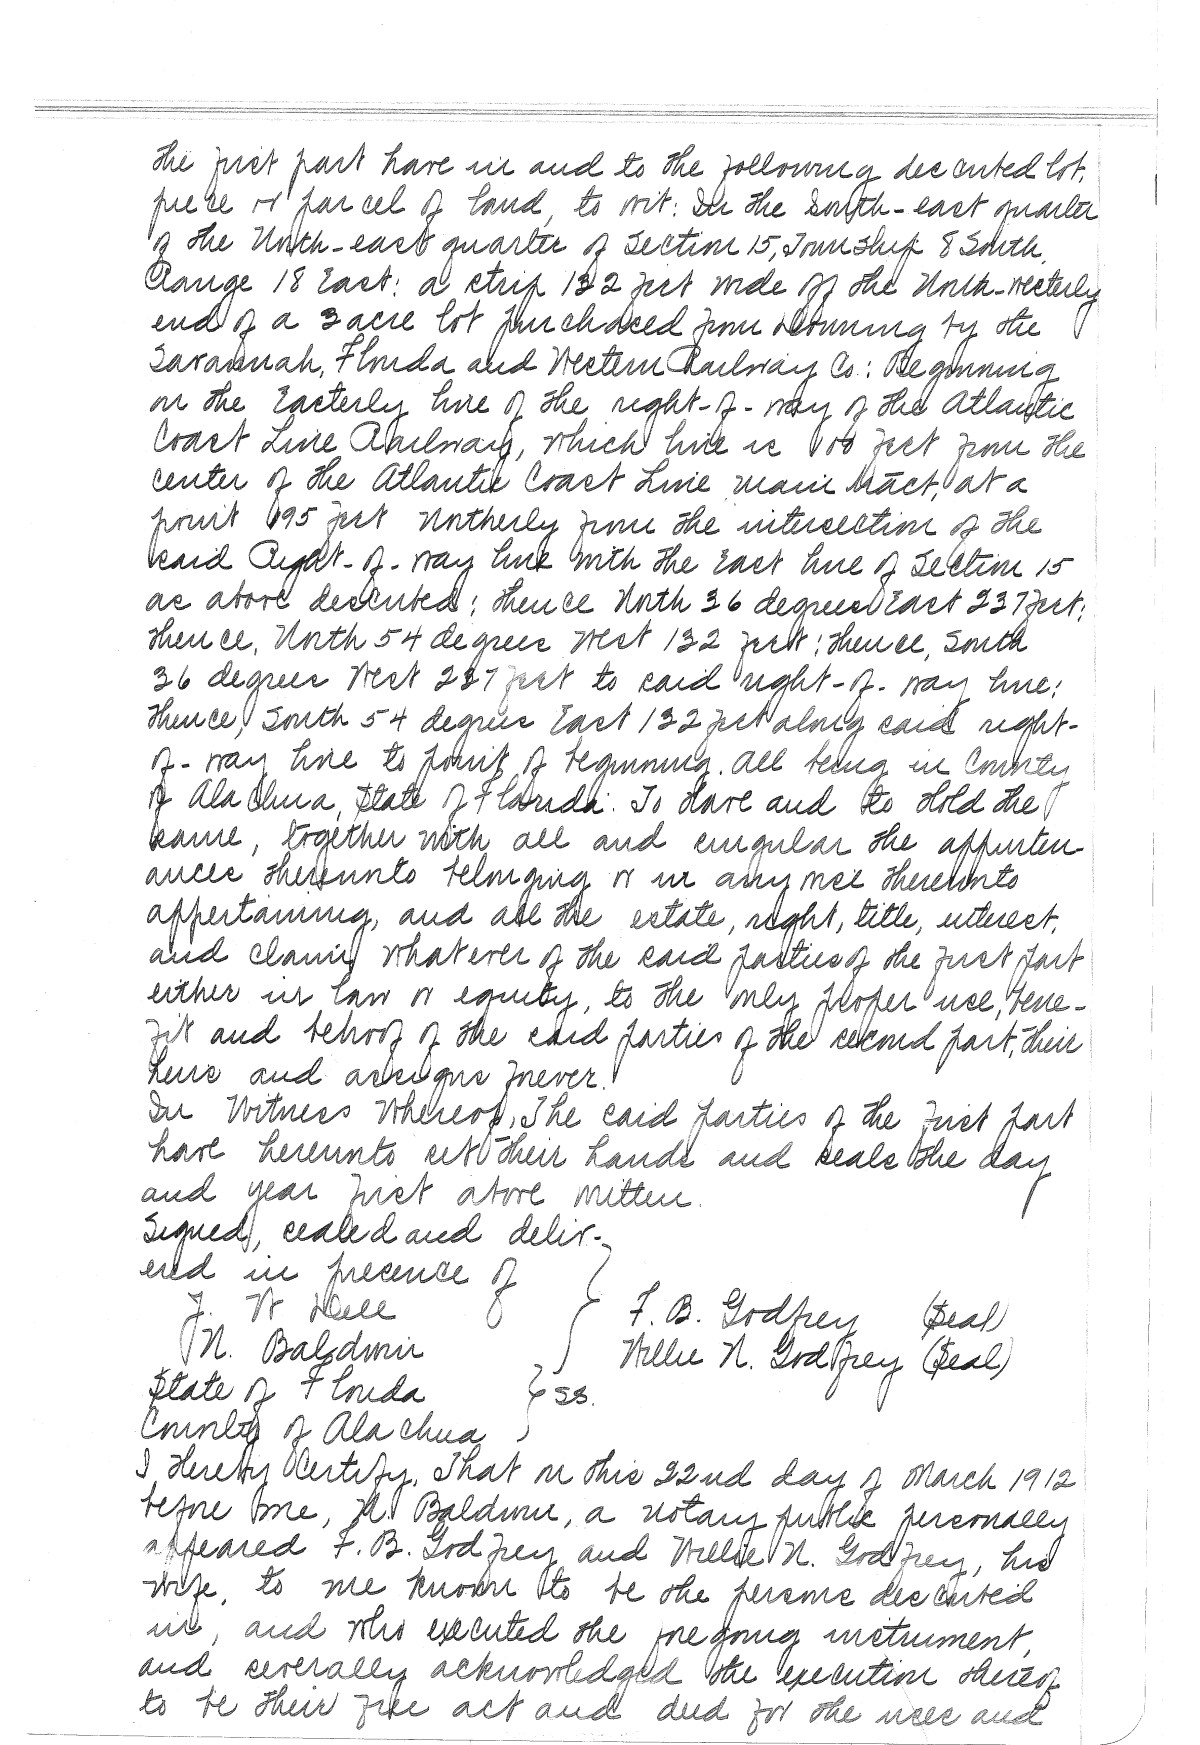 the first part have in and to the following described lot,
piece or parcel of land, to wit: In the South-east quarter
of the North-east quarter of Section 15, Township 8 South,
Range 18 East: a strip 132 feet wide off the North-westerly
end of a 3 acre lot purchased from Downing by the
Savannah, Florida and Western Railway Co: Beginning
on the Easterly line of the right-of-way of the Atlantic
Coast Line Railway, which line is 100 feet from the
center of the Atlantic Coast Line main tract, at a
point 195 feet Northerly from the intersection of the
said Right-of-way line with the East line of Section 15
as above described; thence North 36 degrees East 237 feet;
thence, North 54 degrees West 132 feet; thence, South
36 degrees West 237 feet to said right-of-way line;
thence, South 54 degrees East 132 feet along said right-
of-way line to point of beginning. All being in County
of Alachua, State of Florida. To Have and to Hold the
same, together with all and singular the appurten-
ances thereunto belonging or in anywise thereunto
appertaining, and all the estate, right, title, interest,
and claim whatever of the said parties of the first part
either in law or equity, to the only proper use, bene-
fit and behoof of the said parties of the second part, their
heirs and assigns forever.
In Witness Whereof, The said parties of the first part
have hereunto set their hands and seals the day
and year first above written.
Signed, sealed and deliv-
ered in presence of
J. W Dell
F. B. Godfrey (Seal)
N. Baldwin
Willie N. Godfrey (Seal)
State of Florida } ss.
County of Alachua
I Hereby Certify, That on this 22nd day of March 1912
before me, N. Baldwin, a notary public personally
appeared F. B. Godfrey and Willie N. Godfrey, his
wife, to me known to be the persons described
in, and who executed the foregoing instrument,
and severally acknowledged the execution thereof
to be their free act and deed for the uses and